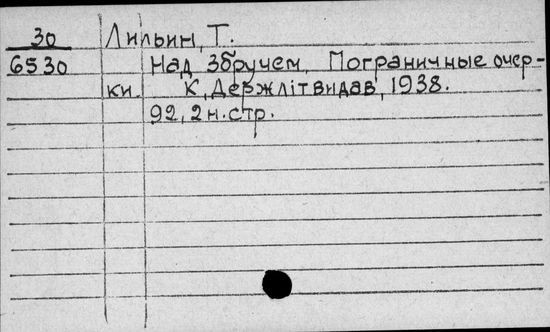 30 Лильин, Т.
6530 Над Збручем. Пограничные очер-
ки. К, Держлітвидав, 1938.
92, 2 н. стр.